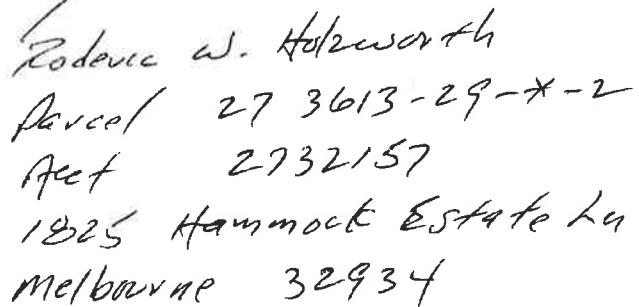 Roderic W. Holzworth
Parcel 27 3613-29-*-2
Acct 2732157
1825 Hammock Estate Ln
Melbourne 32934